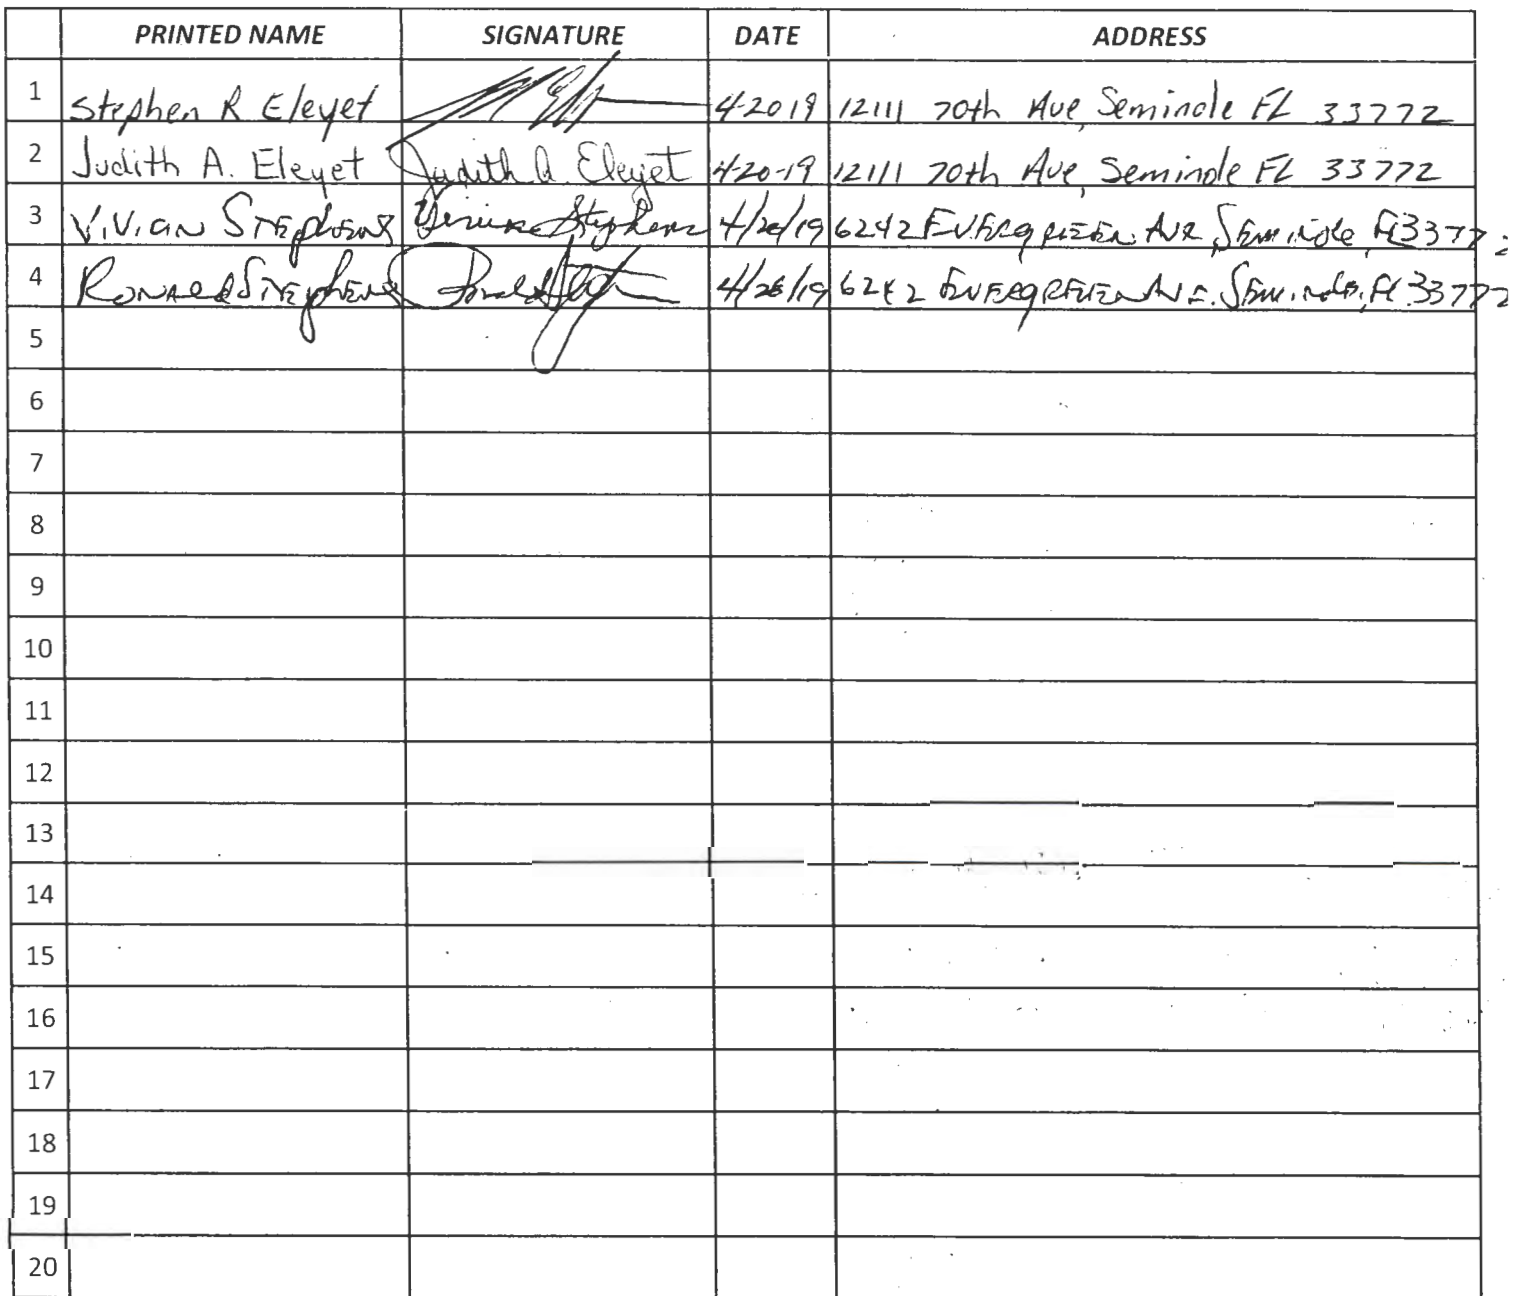 PRINTED NAME SIGNATURE DATE ADDRESS
1 Stephen R Eleyet 4-2019 12111 70th Ave, Seminole FL 33772
2 Judith A. Eleyet Judith A. Eleyet 4-20-19 12111 70th Ave, Seminole FL 33772
3 Vivian Stephens Vivian Stephens 4/20/19 6242 Evergreen Ave, Seminole, FL 33772
4 Ronald Stephens 4/20/19 6242 Evergreen Ave. Seminole, Fl 33772
5
6
7
8
9
10
11
12
13
14
15
16
17
18
19
20